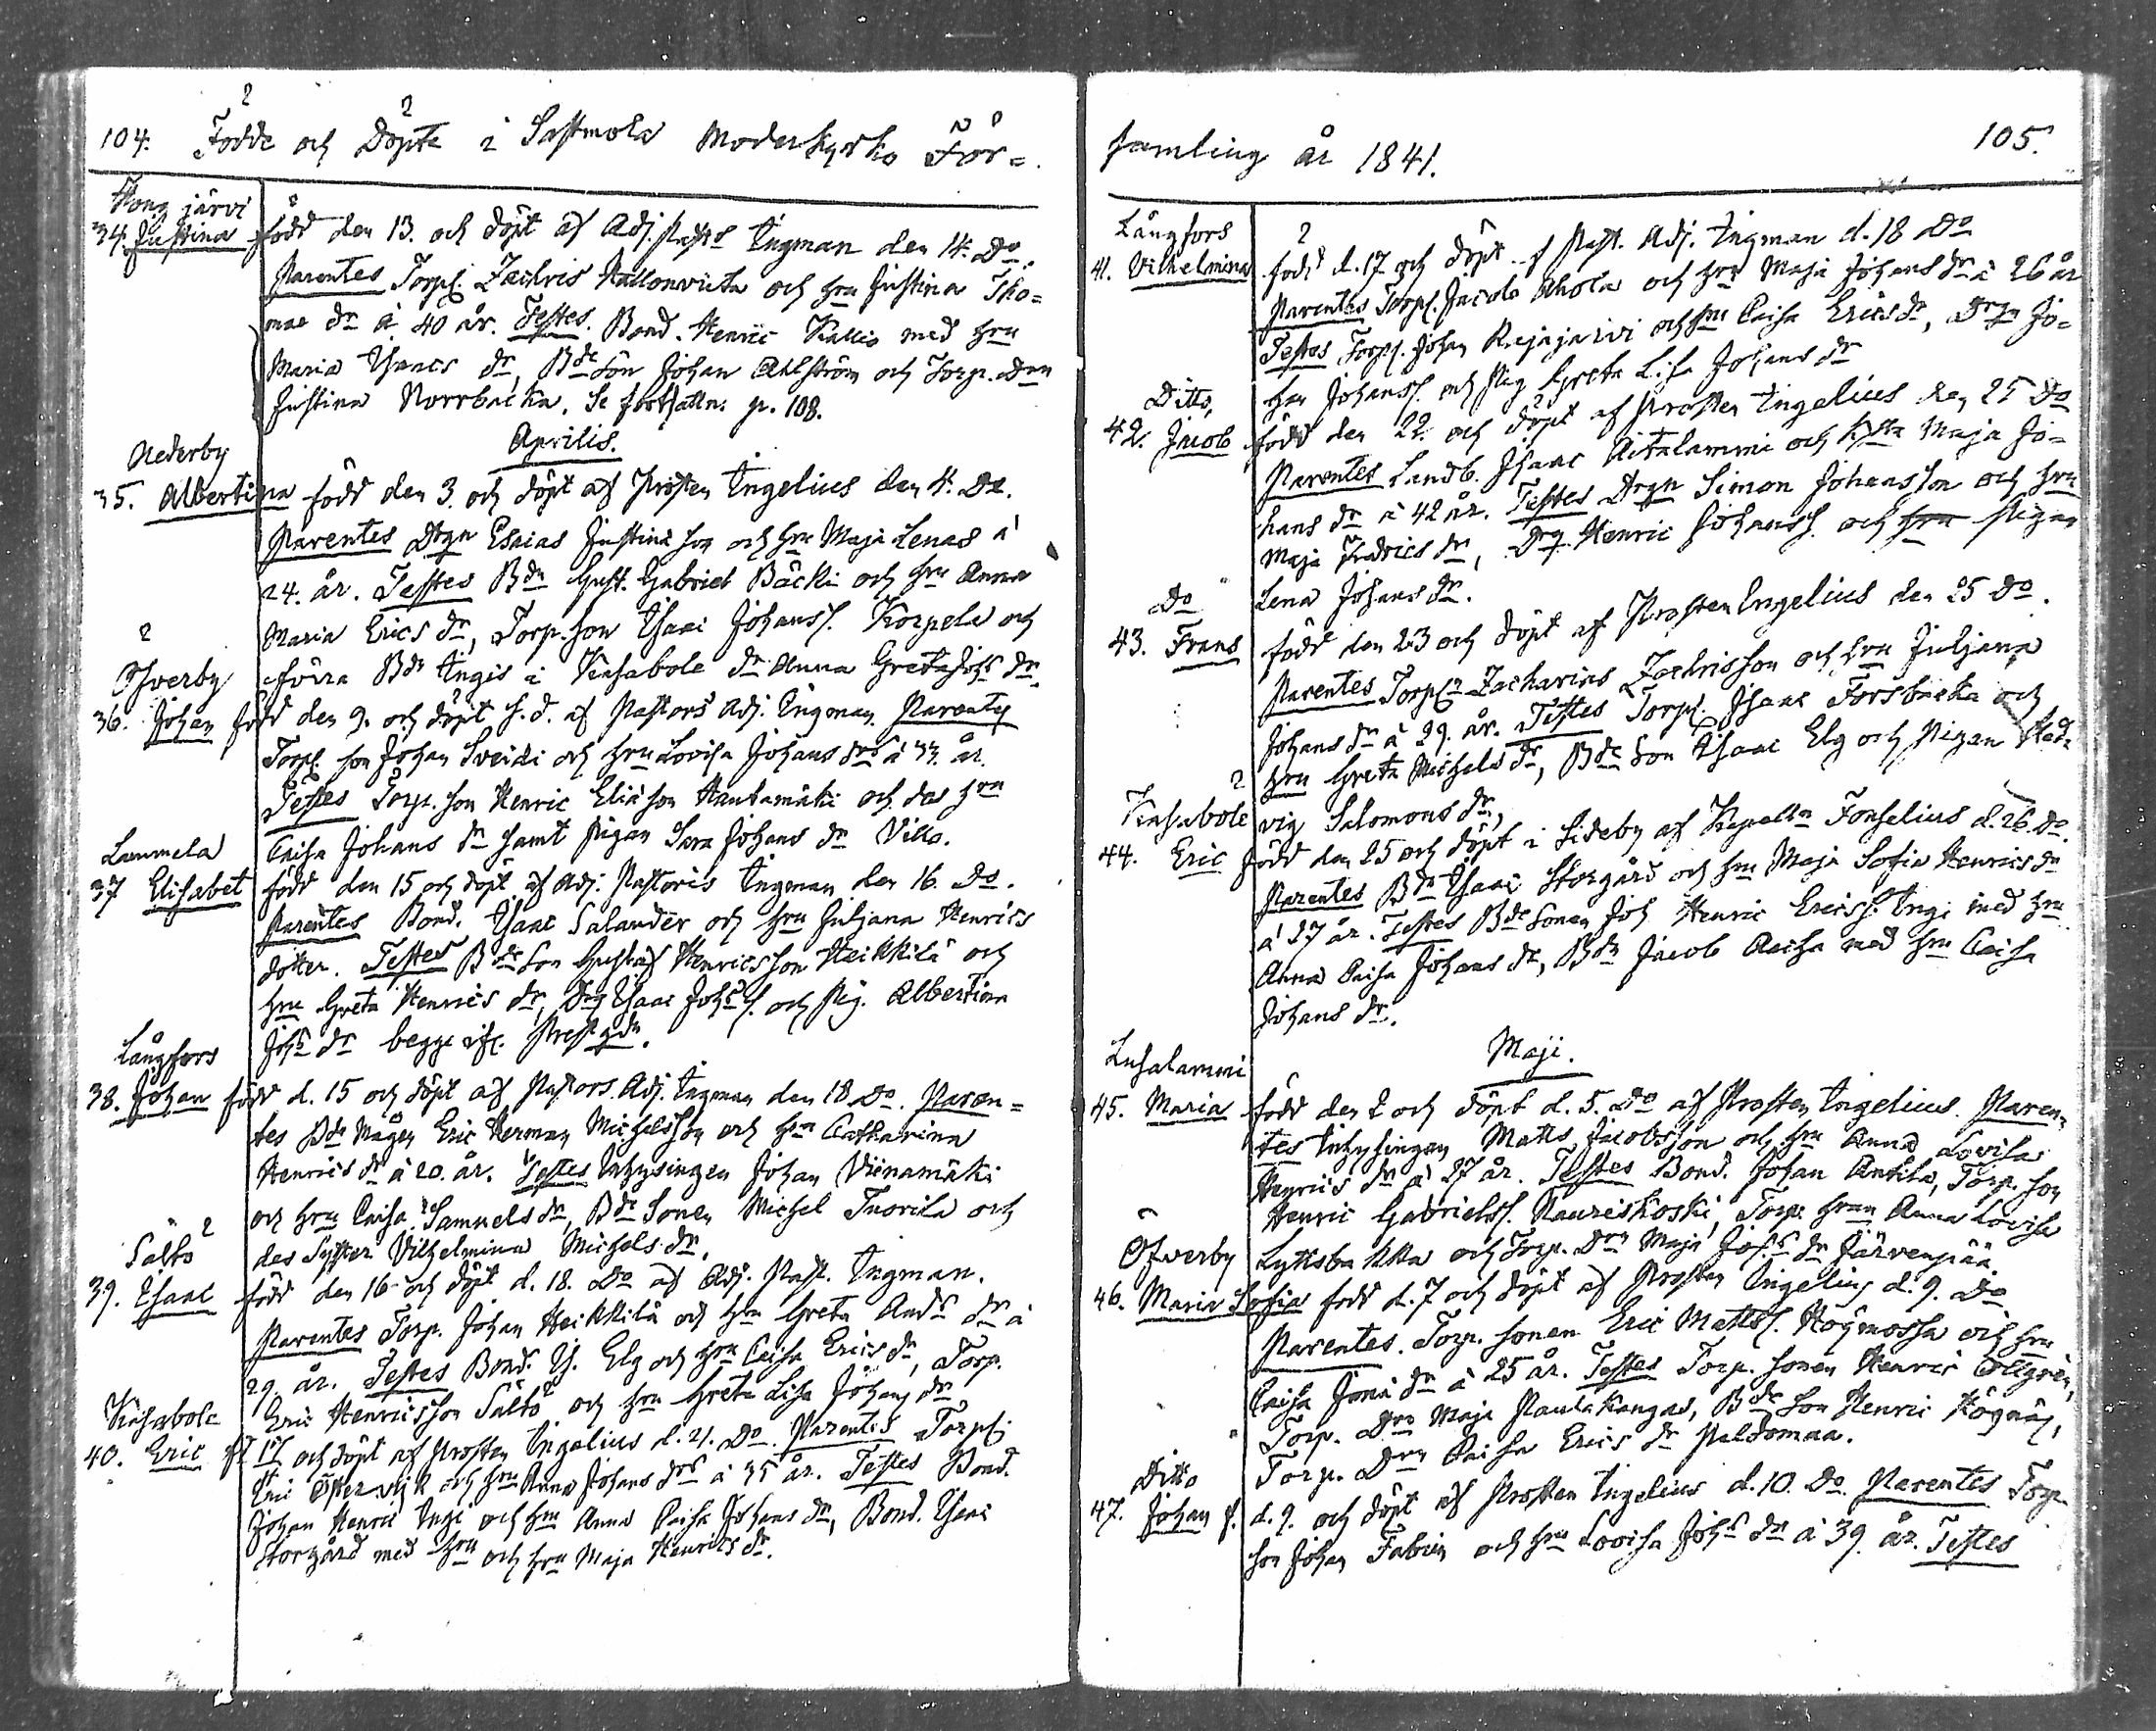 104. Födde och Döpte i Sastmola Moderkyrko För=
Honga järvi
34. Justina född den 13. och döpt af Adj. Pasts Ingman den 14. Do.
Parentes Torp. Zachris Kallonvieta och hru Justina Tho=
mae dr à 40 år. Testes. Bond. Henric Kallio med hru
Maria Isaacs dr, Bde Son Johan Ahlström och Torp. Drn
Justina Norrbacka. Se fortsattn: p. 108.
Aprilis.
Nederby
35. Albertina född den 3. och döpt af Prosten Ingelius den 4. Do.
Parentes Drgn Esaias Justina son och hru Maja Lenas à
24. år. Testes Bdn Gust. Gabriel Bäcki och hru Anna
Maria Erics dr, Torp. son Isaac Johanss. Korpela och
förra Bdn Ingis i Kasabole dr Anna Greta Johs dr.
Öfverby
36. Johan född den 9. och döpt s. d. af Pastors Adj. Ingman. Parentes
Torp. son Johan Sveidi och hru Lovisa Johans drs à 33. år.
Testes Torp. son Henric Eliä son Hautamäki och des hru
Caisa Johans dr samt Pigan Sara Johans dr Villa.
Lammela
37 Elisabet född den 15 och döpt af Adj. Pastoris Ingman den 16. Do.
Parentes Bond. Isaac Salander och hru Juljana Henrics
dotter. Testes Bde Son Gustaf Henricsson Heikkilä och
hru Greta Henrics dr, Drg Isaac Johs s. och Pig. Albertina
Johs dr begge ifr. Prestgdn.
Långfors
38. Johan född d. 15 och döpt af Pastors Adj. Ingman den 18 Do. Paren=
tes Bde Mågen Eric Herman Michelsson och hru Catharina
Henrics dr à 20. år. Testes Inhysingen Johan Viinamäki
och hru Caisa Samuels dr, Bde Sonen Michel Tuorila och
des Syster Vilhelmina Michels dr.
Saltö
39. Isaac född den 16 och döpt d. 18. Do af Adj. Past. Ingman.
Parentes Torp. Johan Heikkilä och hru Greta Ands dr à
29. år. Testes Bond. Is. Elg och hru Caisa Erics dr, Torp.
Eric Henricsson Saltö och hru Greta Lisa Johans dr
Kasabole
40. Eric fd och döpt af Prosten Ingelius d. 21. Do. Parentes Torp.
Eric Östervik och hru Anna Johans drs à 35 år. Testes Bond.
Johan Henric Ingi och hru Anna Caisa Johans dr, Bond. Isaac
Storgård med hru och hru Maja Henrics dr.
samling år 1841. 105.
Långfors
41. Vilhelmina född d. 17 och döpt af Past. Adj. Ingman d. 18 Do
Parentes Torp. Jacob Ahola och hru Maja Johans dr à 26 år
Testes Torp. Johan Rajajärvi och hru Caisa Erics dr, Drgn Jo=
han Johanss. och Pig Greta Lisa Johans dr
Ditto,
42. Jacob född den 22. och döpt af Prosten Ingelius den 25 Do
Parentes Landb. Isaac Aitalammi och hstu Maja Jo=
hans dr à 42 år. Testes Drgn Simon Johansson och hru
Maja Fredrics dr, Drg. Henric Johanss. och hru Pigan
Lena Johans dr.
Do
43. Frans född den 23 och döpt af Prosten Ingelius den 25 Do.
Parentes Torpn Zacharias Zachrisson och hru Juljana
Johans dr à 29. år. Testes Torp. Isaac Forsbacka och
hru Greta Michels dr, Bde Son Isaac Elg och Pigan Hed=
vig Salomons dr,
Kasabole
44. Eric född den 25 och döpt i Sideby af Kapelln Forselius d. 26. Do.
Parentes Bdn Isaac Storgård och hru Maja Sofia Henrics dr
à 27 år. Testes Bde Sonen Joh Henric Ericss. Ingi med hru
Anna Caisa Johans dr, Bdn Jacob Reisa med hru Caisa
Johans dr.
Maji.
Lusalammi
45. Maria född den 2 och döpt d. 5. Do af Prosten Ingelius. Paren=
tes Inhysingen Matts Jacobsson och hru Anna Lovisa
Henrics dr à 27 år. Testes Bond. Johan Antila, Torp. son
Henric Gabrielss. Kauriskoski, Torp. hrun Anna Lovisa
Lyttsbakka och Torp. Drn Maja Johs dr Järvenpää.
Öfverby
46. Maria Sofia född d. 7 och döpt af Prosten Ingelius d. 9. Do
Parentes. Torp. sonen Eric Mattss. Högmossa och hru
Caisa Jonä dr à 25 år. Testes Torp. sonen Henric Ollgrén,
Torp. Drn Maja Rautakangas, Bde Son Henric Högnäs,
Torp. Drn Caisa Erics dr Paldomaa.
Ditto
47. Johan f. d. 9. och döpt af Prosten Ingelius d. 10. Do. Parentes Torp.
son Johan Fabien och hru Lovisa Johs dr à 39. år. Testes